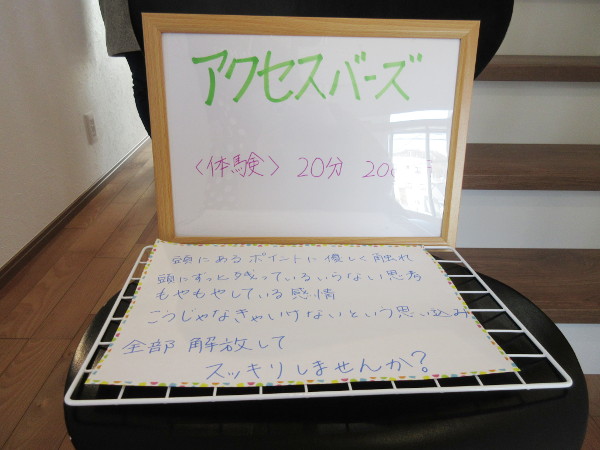 アクセスバーズ
〈体験〉 20分
頭にあるポイントに優しく触れ
頭にずっと残っているいらない思考
もやもやしている感情
こうじゃなきゃいけないという思い込み
全部 解放して
スッキリしませんか?